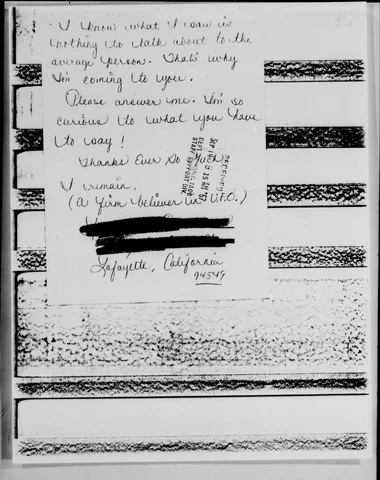 I know what I saw is
nothing to talk about to the
average person. That's why
I'm coming to you.
Please answer me. I'm so
curious to what you have
to say!
Thanks Ever So Much
I remain,
(A firm believer in U.F.O.)
Lafayette, California
94549
RECEIVED
SEP 9 15 AM '67
STAFF SUPPORT DIV.